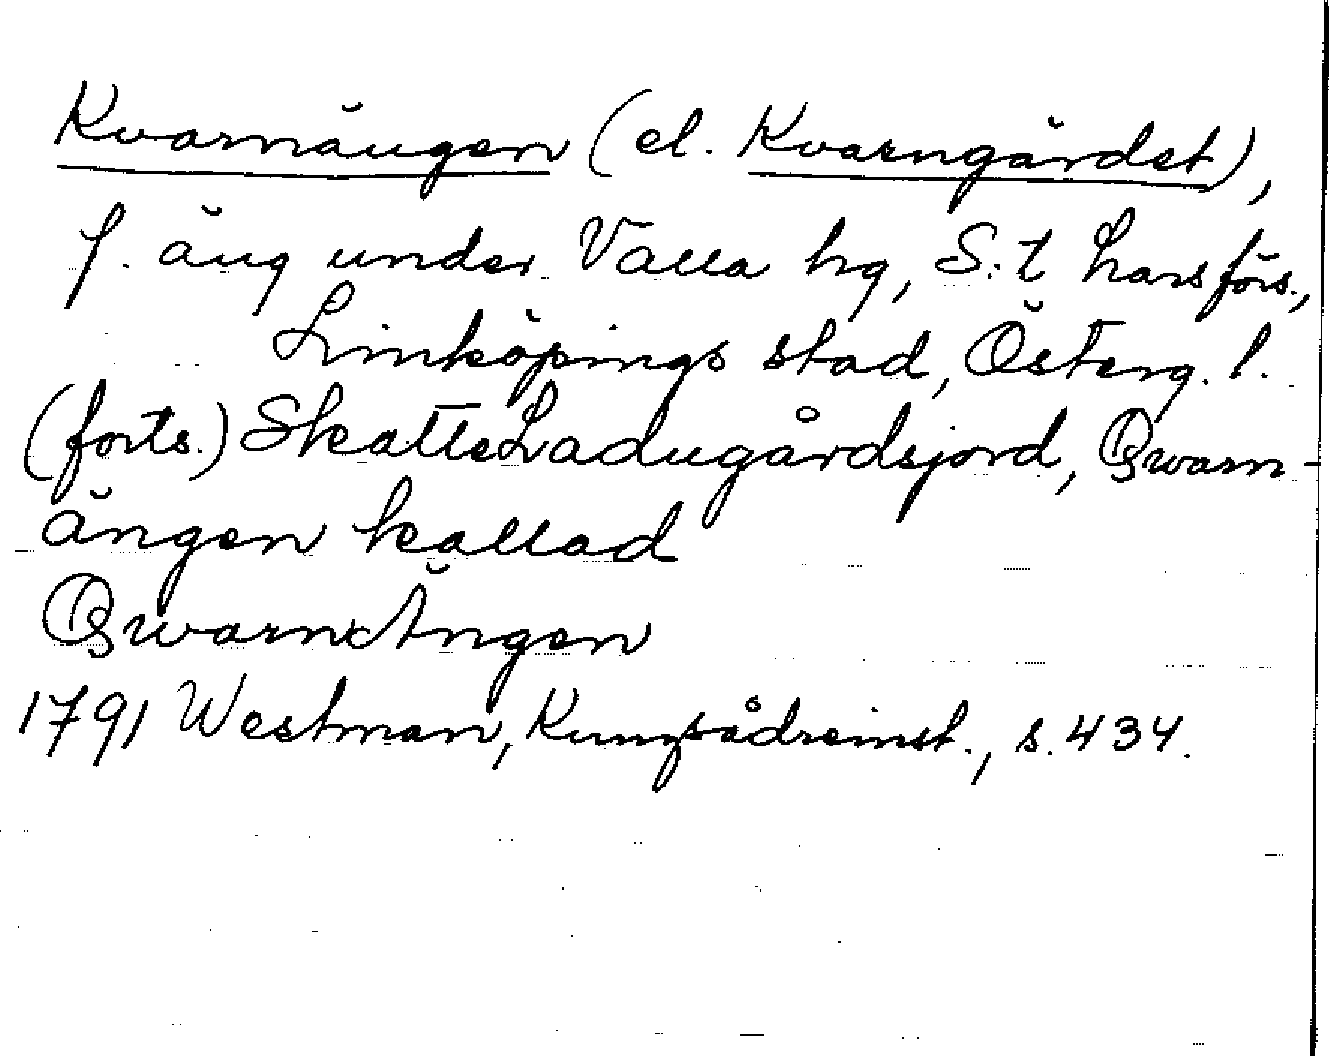 Kvarnängen (el. Kvarngärdet),
f. äng under Valla hg, S:t Lars förs.,
Linköpings stad, Österg. l.
(forts.) SkatteLadugårdsjord, Qwarn-
ängen kallad
QwarnÄngen
1791 Westman, Kungsådreinst., s. 434.